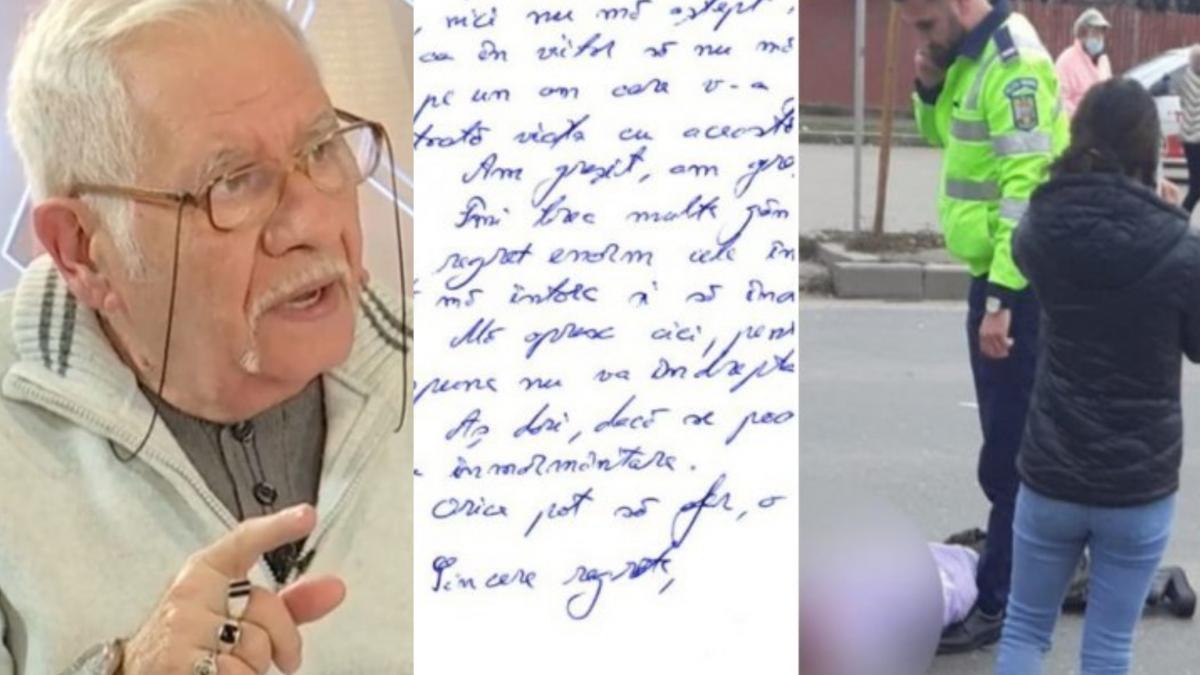 , nici nu mă aștept,
ca în viitor să nu mă
pe un om care v-a
viața cu această
Am greșit, am gre
Îmi trec multe gân
regret enorm cele în
mă întorc și să îna
Mă opresc aici, pen
spune nu va îndrepta
Aș dori, dacă se poa
înmormântare.
Orice pot să ofer, o
Sincere regrete,